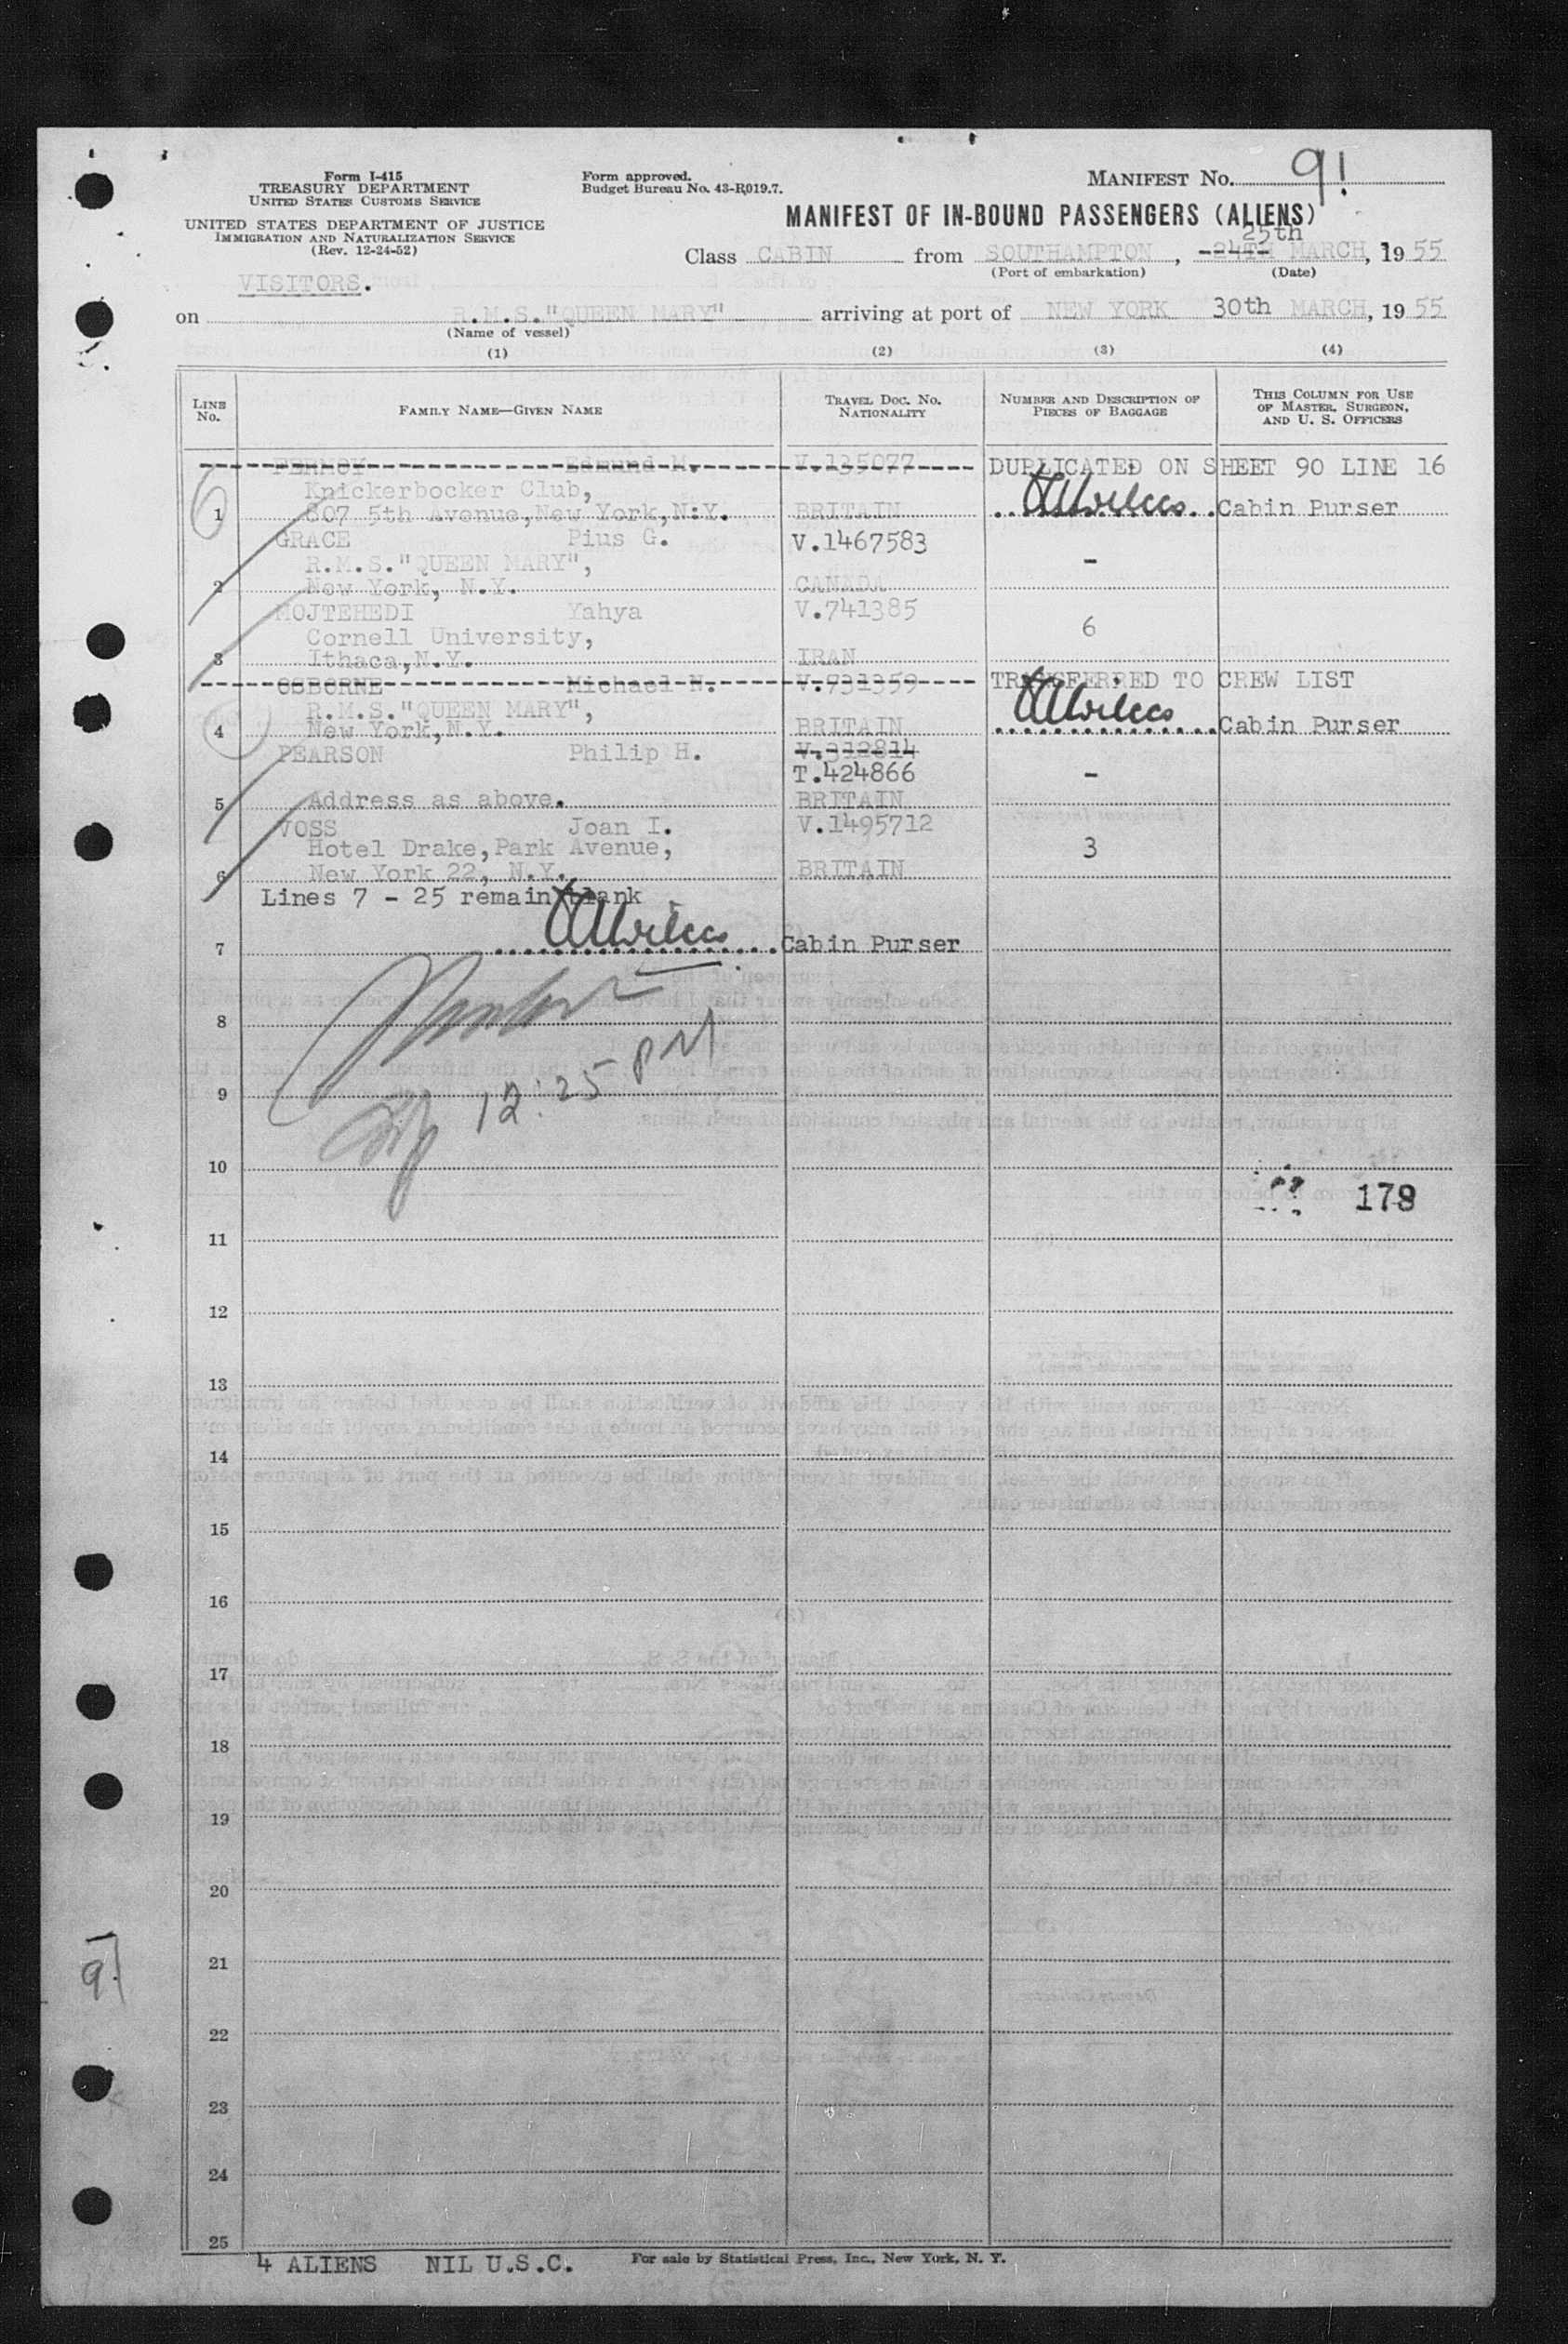 Form I-415
TREASURY DEPARTMENT
UNITED STATES CUSTOMS SERVICE
UNITED STATES DEPARTMENT OF JUSTICE
IMMIGRATION AND NATURALIZATION SERVICE
(Rev. 12-24-52)
Form approved.
Budget Bureau No. 43-R019.7.
MANIFEST No. 91
MANIFEST OF IN-BOUND PASSENGERS (ALIENS)
25th
Class CABIN from SOUTHAMPTON, 24TH MARCH, 1955
(Port of embarkation) (Date)
VISITORS.
on R.M.S."QUEEN MARY" arriving at port of NEW YORK 30th MARCH, 1955
(Name of vessel)
(1) (2) (3) (4)
LINE No. FAMILY NAME—GIVEN NAME TRAVEL DOC. NO. NATIONALITY NUMBER AND DESCRIPTION OF PIECES OF BAGGAGE THIS COLUMN FOR USE OF MASTER, SURGEON, AND U. S. OFFICERS
Edmund M. V.135077 DUPLICATED ON SHEET 90 LINE 16
Knickerbocker Club,
1 807 5th Avenue, New York, N.Y. BRITAIN Cabin Purser
GRACE Pius G. V.1467583
R.M.S."QUEEN MARY", -
2 New York, N.Y. CANADA
MOJTEHEDI Yahya V.741385
Cornell University, 6
3 Ithaca, N.Y. IRAN
OSBORNE Michael N. V.931359 TRANSFERRED TO CREW LIST
R.M.S."QUEEN MARY",
4 New York, N.Y. BRITAIN Cabin Purser
PEARSON Philip H. V.312814
T.424866 -
5 Address as above. BRITAIN
VOSS Joan I. V.1495712
Hotel Drake, Park Avenue, 3
6 New York 22, N.Y. BRITAIN
Lines 7 - 25 remain blank
7 Cabin Purser
8
9 12:25 PM
10
179
11
12
13
14
15
16
17
18
19
20
21
91
22
23
24
25
4 ALIENS NIL U.S.C. For sale by Statistical Press, Inc., New York, N. Y.